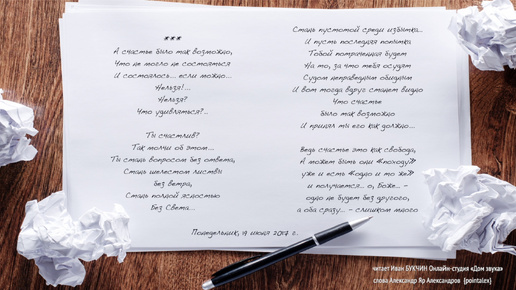 ***
А счастье было так возможно,
Что не могло не состояться
И состоялось... если можно...
Нельзя!...
Нельзя?
Что удивляться?...
Ты счастлив?
Так молчи об этом...
Ты стань вопросом без ответа,
Стань шелестом листвы
без ветра,
Стань полной ясностью
Без Света...
Понедельник, 19 июня 2017 г.
Стань пустотой среди избытка...
И пусть последняя попытка
Тобой потраченная будет
На то, за что тебя осудят
Судом неправедным обидным
И вот тогда вдруг станет видно
Что счастье
было так возможно
И принял ты его как должно...
Ведь счастье это как свобода,
А может быть они «походу»?
уже и есть «одно и то же»?
и получается... о, Боже... –
одно не будет без другого,
а оба сразу... – слишком много
читает Иван БУКЧИН Онлайн-студия «Дом звука»
слова Александр Яр Александров [pointalex]